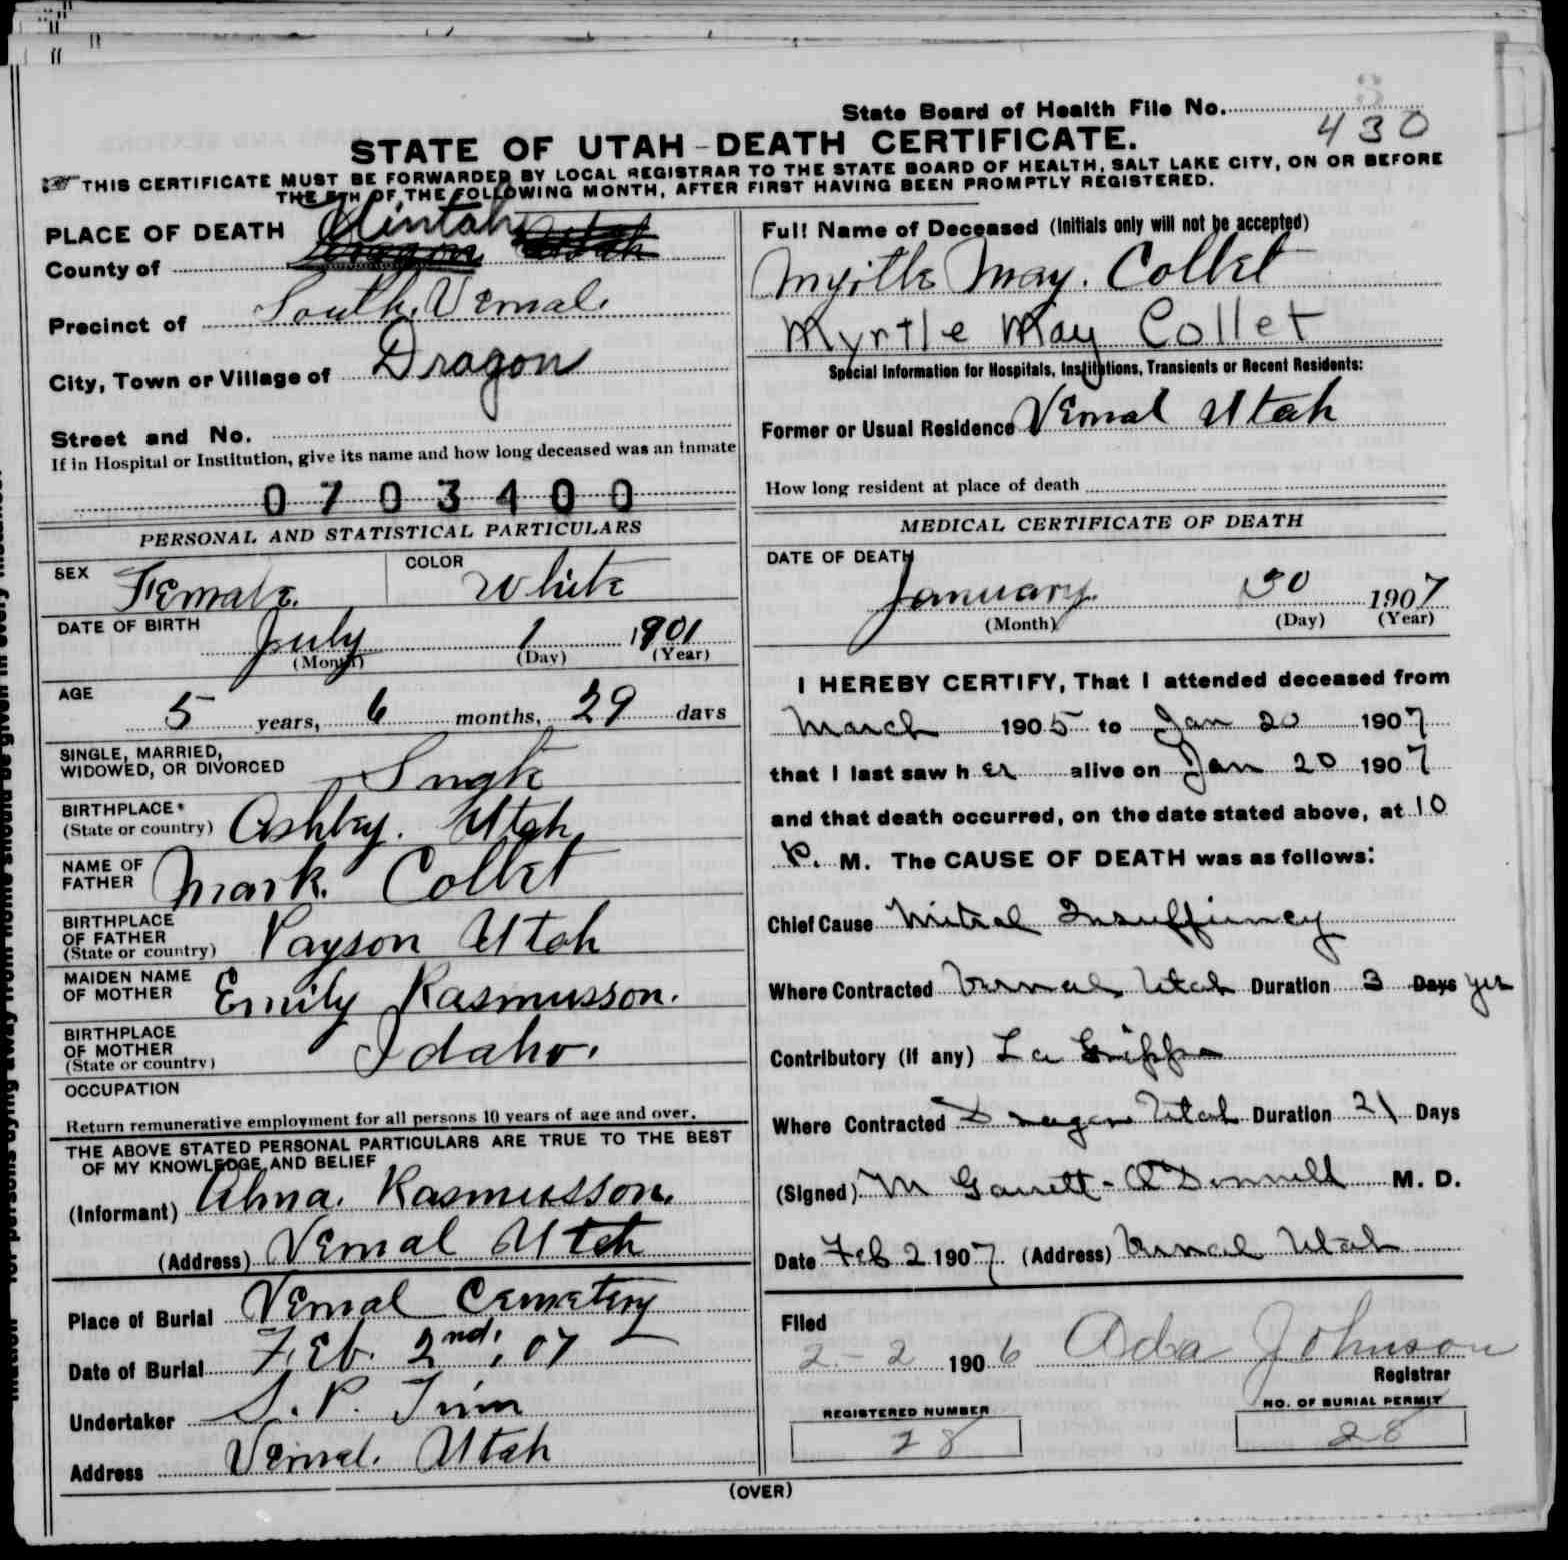 State Board of Health File No. 430
STATE OF UTAH-DEATH CERTIFICATE.
THIS CERTIFICATE MUST BE FORWARDED BY LOCAL REGISTRAR TO THE STATE BOARD OF HEALTH, SALT LAKE CITY, ON OR BEFORE
THE 5TH OF THE FOLLOWING MONTH, AFTER FIRST HAVING BEEN PROMPTLY REGISTERED.
PLACE OF DEATH Uintah
County of Dragon Utah
Precinct of South Vernal.
City, Town or Village of Dragon
Street and No.
If in Hospital or Institution, give its name and how long deceased was an inmate
0703400
PERSONAL AND STATISTICAL PARTICULARS
SEX Female. COLOR White
DATE OF BIRTH July 1 1901
(Month) (Day) (Year)
AGE
5 years, 6 months, 29 days
SINGLE, MARRIED,
WIDOWED, OR DIVORCED Single
BIRTHPLACE
(State or country) Ashley. Utah
NAME OF
FATHER Mark. Collet
BIRTHPLACE
OF FATHER
(State or country) Payson Utah
MAIDEN NAME
OF MOTHER Emily Rasmusson.
BIRTHPLACE
OF MOTHER
(State or country) Idaho.
OCCUPATION
Return remunerative employment for all persons 10 years of age and over.
THE ABOVE STATED PERSONAL PARTICULARS ARE TRUE TO THE BEST
OF MY KNOWLEDGE AND BELIEF
(Informant) Alma. Rasmusson.
(Address) Vernal Utah
Place of Burial Vernal Cemetery
Date of Burial Feb. 2nd, 07
Undertaker S. P.
Address Vernal. Utah
Full Name of Deceased (Initials only will not be accepted)
Myrtle May. Collet
Myrtle May Collet
Special Information for Hospitals, Institutions, Transients or Recent Residents:
Former or Usual Residence Vernal Utah
How long resident at place of death
MEDICAL CERTIFICATE OF DEATH
DATE OF DEATH
January. 30 1907
(Month) (Day) (Year)
I HEREBY CERTIFY, That I attended deceased from
March 1905 to Jan 20 1907
that I last saw her alive on Jan 20 1907
and that death occurred, on the date stated above, at 10
P. M. The CAUSE OF DEATH was as follows:
Chief Cause Mitral Insuffiency
Where Contracted Vernal Utah Duration 3 Days yrs
Contributory (if any) La Grippe
Where Contracted Dragon Utah Duration 21 Days
(Signed) M Garrett-O'Donnell M. D.
Date Feb 2 1907 (Address) Vernal Utah
Filed
2-2 1906 Ada Johnson
Registrar
REGISTERED NUMBER NO. OF BURIAL PERMIT
28 28
(OVER)